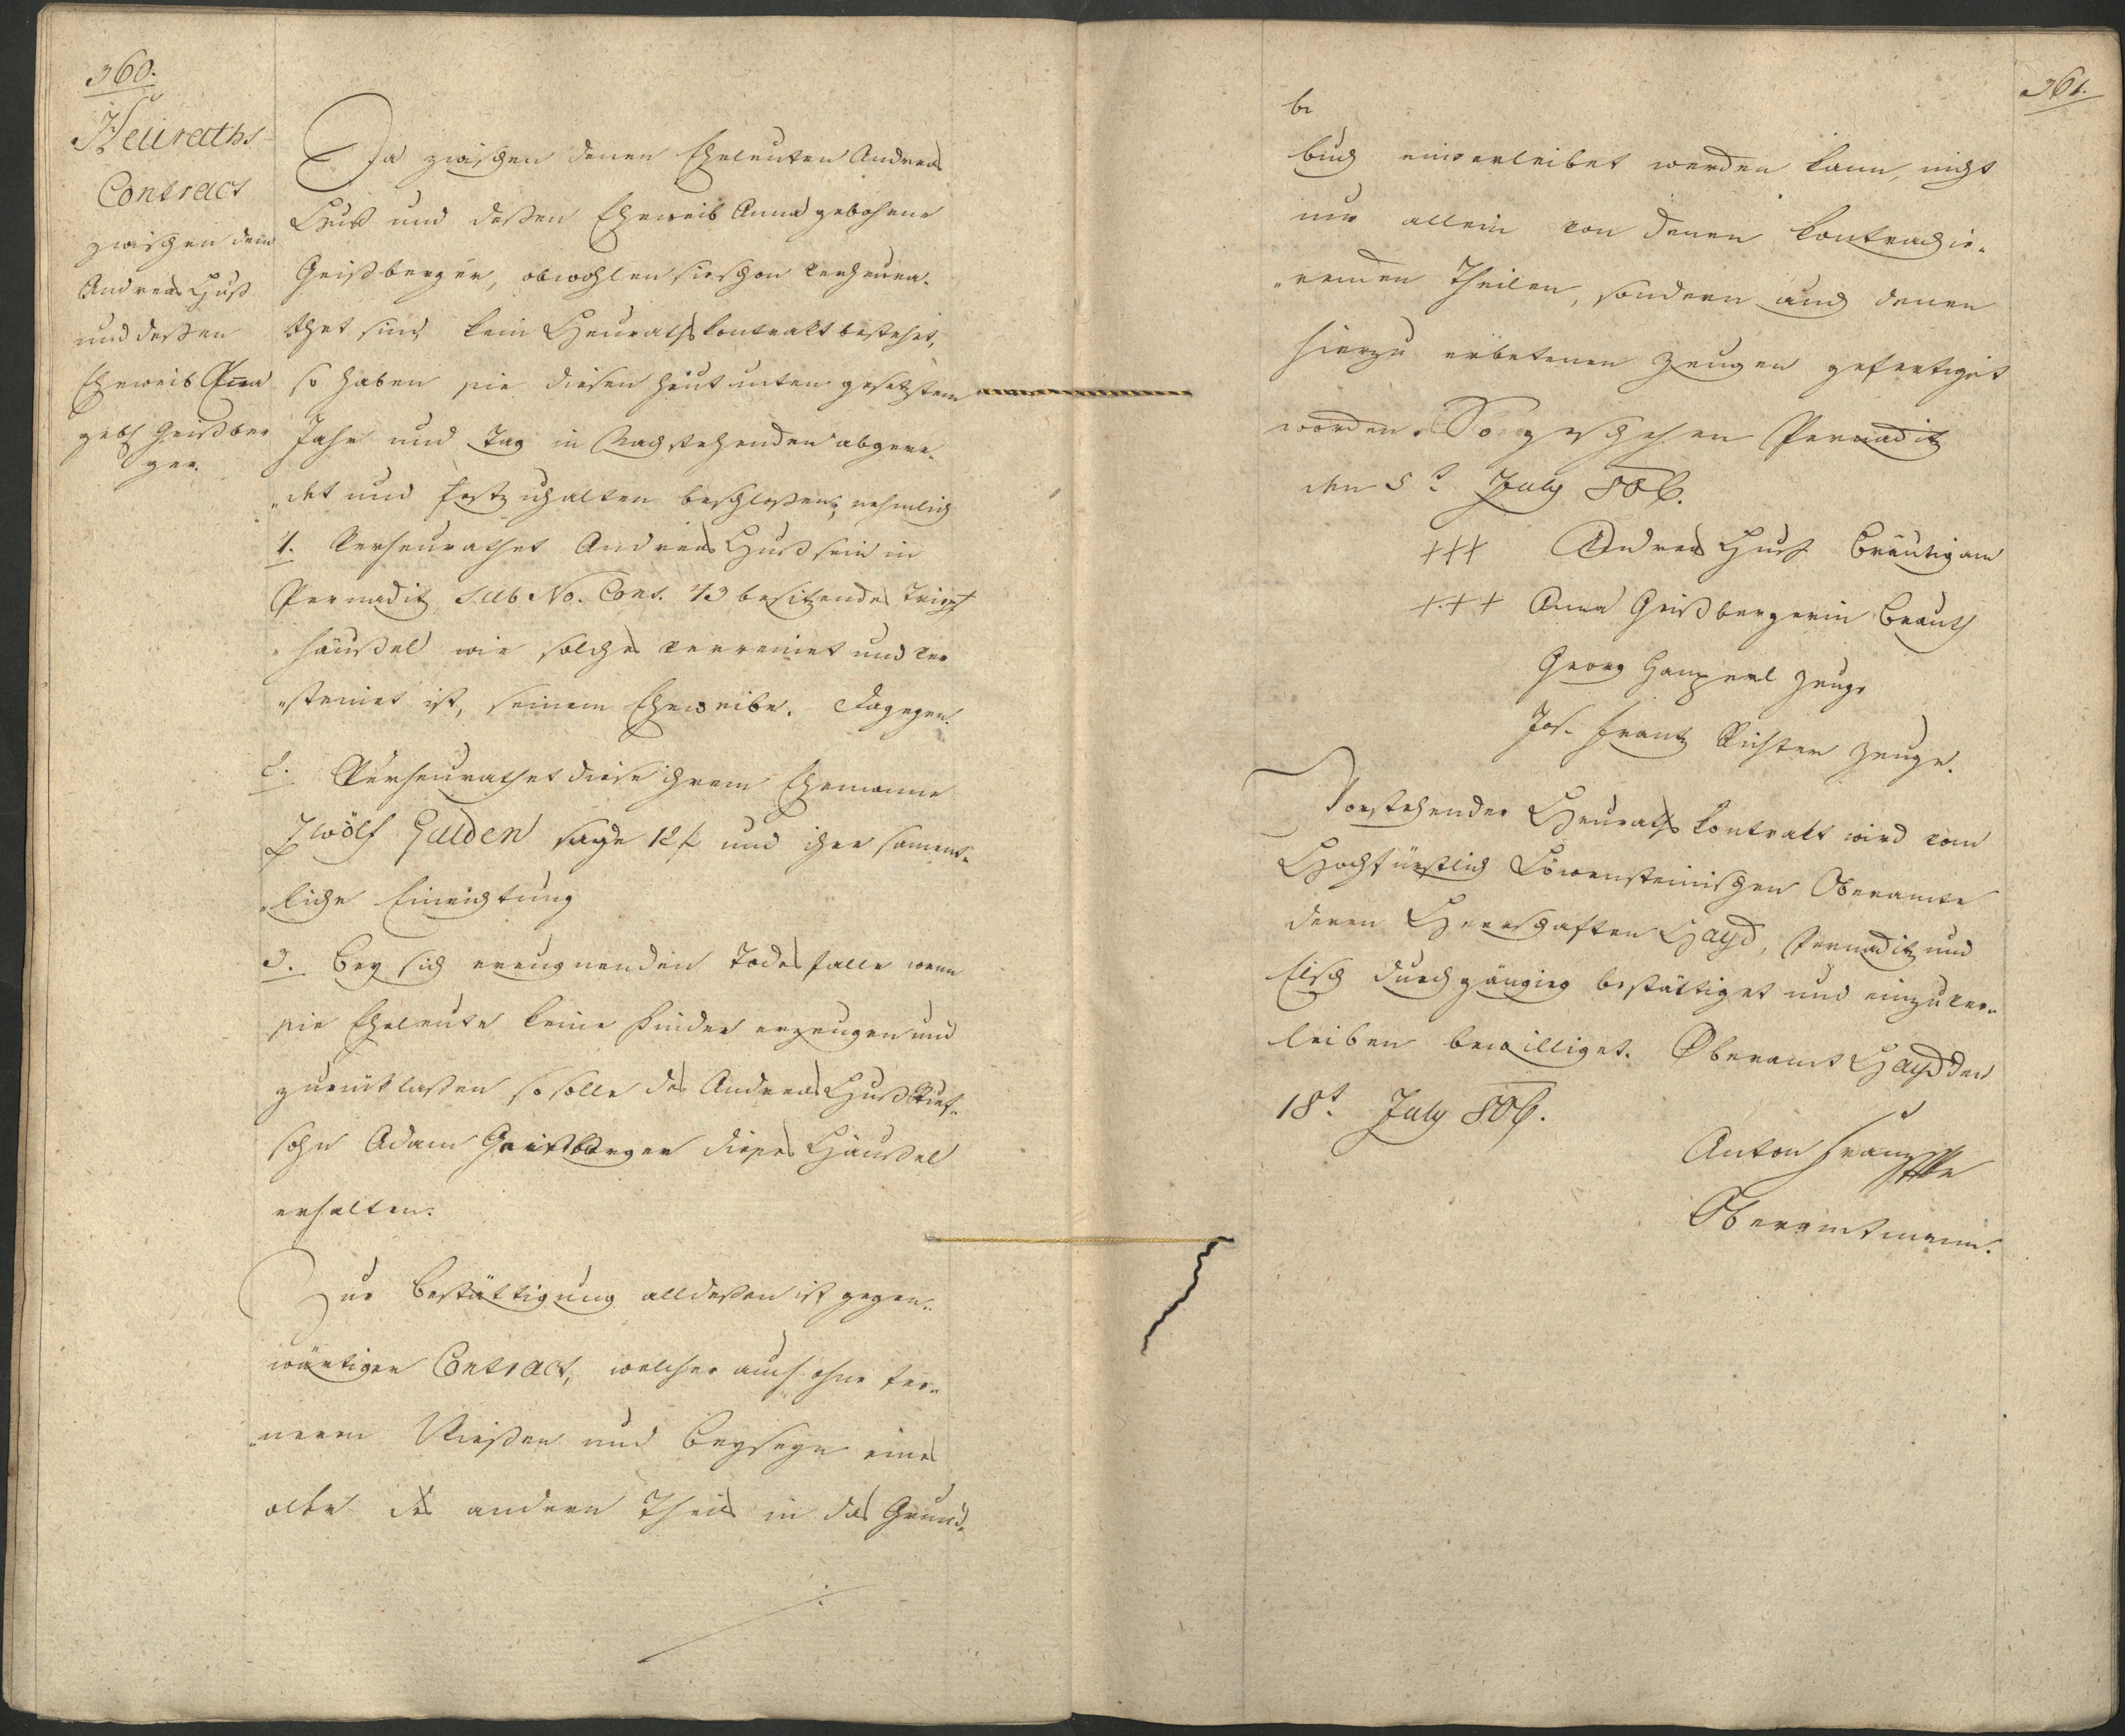 360.
Heuraths
Contract
zwischen dem
Andreas Huß
und deßen
Eheweib Anna
geb. Geißber
ger.
Da zwischen denen Eheleuten Andreas
Huß und deßen Eheweib Anna gebohrne
Geißberger, obwohlen sie schon verheura-
thet sind kein Heurathskontrakt bestehet,
so haben sie diesen heut unten gesetzten
Jahr und Tag in Nachstehenden abgere-
„det und festzuhalten beschloßen, nehmlich
1. Verheurathet Andreas Huß sein in
Pernaditz sub No. Cons. 43 besitzendes
„häußel wie solches verreinet und ver
„steinet ist, seinem Eheweibe. Dagegen.
2. Verheurathet diese ihrem Ehemanne
Zwölf Gulden sage 12 f und ihre sament-
„liche Einrichtung
3. Bey sich ereugnenden Todesfalle wenn
sie Eheleute keine Kinder erzeugen und
zurücklaßen so solle des Andreas Huß Stief-
sohn Adam Geißberger dieses Häußel
erhalten.
Zur Bestättigung alldeßen ist gegen-
wärtiger Contract, welcher auch ohne fer-
„neren Wießen und Beyseyn eines
oder des andern Theils in das Grund-
361.
buch einverleibet werden kann, nicht
nur allein von denen kontrachie-
„renden Theilen, sondern auch denen
hierzu erbetenen Zeugen gefertiget
worden. So geschehen Pernaditz
den 5t July 806.
+++ Andreas Huß Bräutigam
+++ Anna Geißbergerin Brauth
Georg Zeuge
Jos. Frantz Richter Zeuge.
Vorstehender Heurathskontrakt wird vom
Hochfürstlich Löwensteinischen Oberamte
deren Herrschaften Hayd, Pernaditz und
Elsch durchgängig bestättiget und einzuver-
leiben bewilliget. Oberamt Hayd den
18t. July 806.
Anton Franz
Oberamtmann.